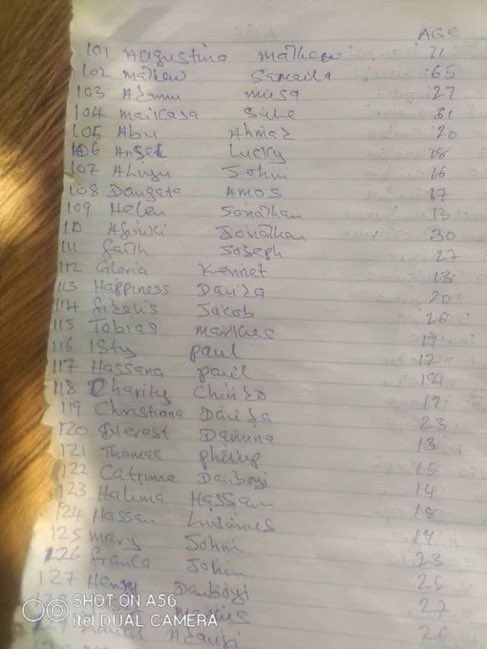 AGE
101 Augustina Mathew 21
102 Mathew Ismaila 65
103 Adamu Musa 27
104 Maikasa Sule 61
105 Abu Ahmad 20
106 Angel Lucky 18
107 John 16
108 Dangata Amos 17
109 Helen Jonathan 13
110 Afiniki Jonathan 30
111 Faith Joseph 27
112 Gloria Kennet 13
113 Happiness Dauda 20
114 Fidelis Jacob 26
115 Tobias 19
116 Isty Paul 12
117 Hassana Paul
118 Charity Chindo 19
119 Christiana Dauda 23
120 Everest Damina 13
121 Thomas Philip 15
122 Catrina Danboyi 14
123 Halima Hassan 18
124 Hassan 19
125 Mary John 23
126 Franca John 25
127 Henry Danboyi 27
26
SHOT ON A56
itel DUAL CAMERA